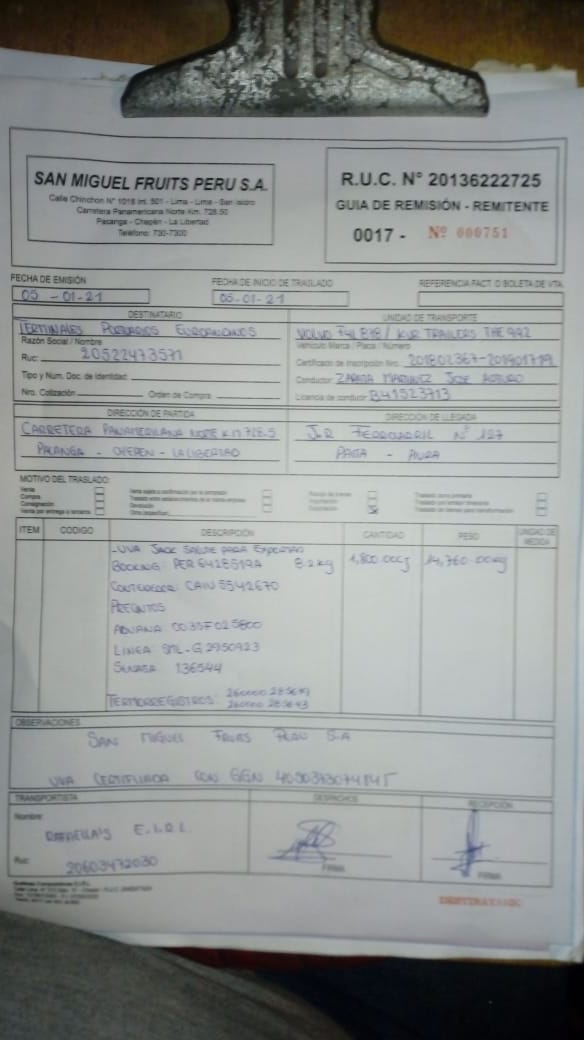 SAN MIGUEL FRUITS PERU S.A.
Calle Chinchon N° 1018 Int. 501 - Lima - Lima - San Isidro
Carretera Panamericana Norte Km. 728.50
Pacanga - Chepén - La Libertad
Teléfono: 730-7300
R.U.C. N° 20136222725
GUIA DE REMISIÓN - REMITENTE
0017 - Nº 000751
FECHA DE EMISIÓN
05 - 01-21
FECHA DE INICIO DE TRASLADO
05-01-21
REFERENCIA FACT. O BOLETA DE VTA.
DESTINATARIO
Razón Social / Nombre
Ruc: 20522473571
Tipo y Num. Doc. de Identidad:
Nro. Cotización Orden de Compra:
UNIDAD DE TRANSPORTE
VOLVO F4L 818 / KUR TRAILERS THE 992
Vehículo Marca / Placa / Número
Certificado de Inscripción Nro. 201802367-201901719
Conductor: ZAPATA MARTINEZ JOSE ARTURO
Licencia de conducir B41523713
DIRECCIÓN DE PARTIDA
CARRETERA PANAMERICANA NORTE KM 728.5
PACANGA - CHEPEN - LA LIBERTAD
DIRECCIÓN DE LLEGADA
JR FERROCARRIL N° 127
PAITA - PIURA
MOTIVO DEL TRASLADO:
Venta
Compra
Consignación
Venta por entrega a terceros
Venta sujeta a confirmación por el comprador
Traslado entre establecimientos de la misma empresa
Devolución
Importación
Exportación
Traslado zona primaria
Traslado por emisor itinerante
Traslado de bienes para transformación
ITEM CODIGO DESCRIPCIÓN CANTIDAD PESO UNIDAD DE MEDIDA
- UVA JACK SALUTE PARA EXPORTAR
BOOKING: PER 6428519A 8.2 kg 1,800.00 14,760.00 kg
CONTENEDOR: CAIU 5542670
PRECINTOS
ADUANA 0035F025800
LINEA: SML-G 2950923
SENASA 136544
TERMORREGISTROS:
OBSERVACIONES
SAN MIGUEL FRUITS PERU S.A
UVA CERTIFICADA CON GGN
TRANSPORTISTA
Nombre:
RAFAELLA'S E.I.R.L
Ruc: 20603472030
DESPACHOS
FIRMA
RECEPCIÓN
FIRMA
DESTINATARIO